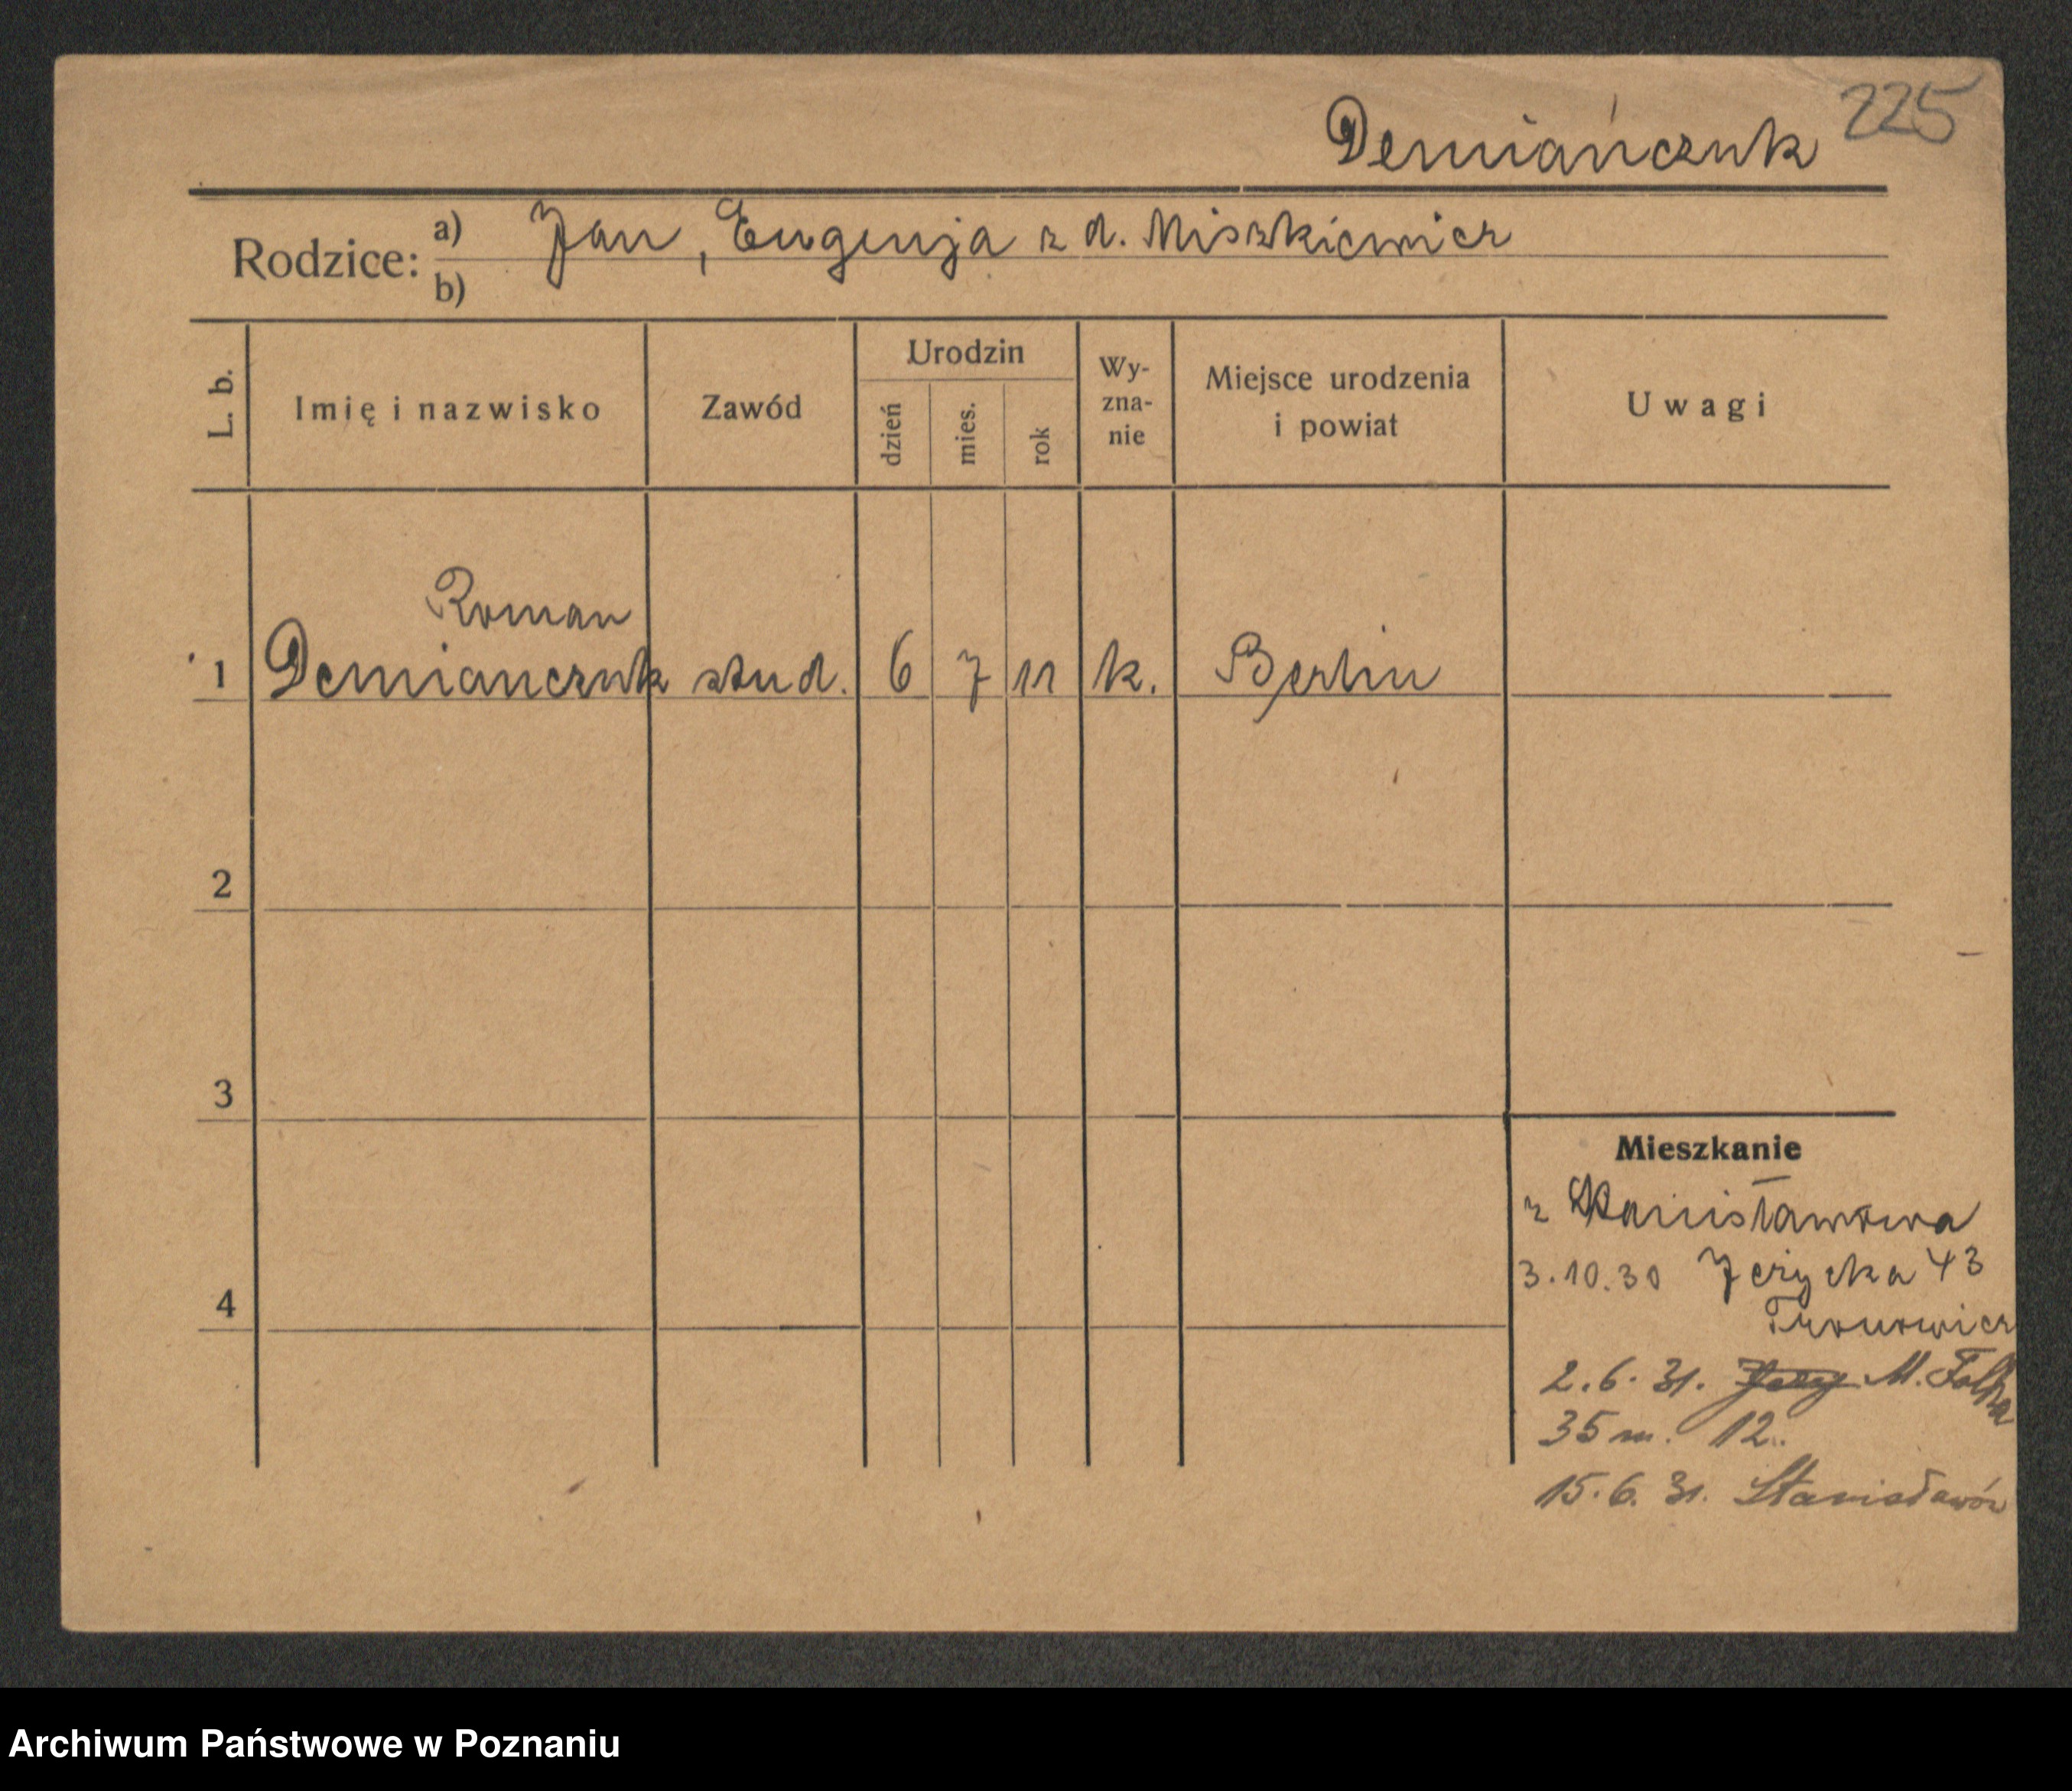 225
Demiańczuk
Rodzice: a) Jan, Eugenja z d. Miszkiewicz
b)
L. b.
Imię i nazwisko
Zawód
Urodzin
dzień
mies.
rok
Wy-
zna-
nie
Miejsce urodzenia
i powiat
Uwagi
Roman
1 Demianczuk stud. 6 7 11 k. Berlin
2
3
4
Mieszkanie
z Stanisławowa
3.10.30 Jeżycka 43
2.6.31. M. Focha
35 m. 12.
15.6.31. Stanisławów
Archiwum Państwowe w Poznaniu